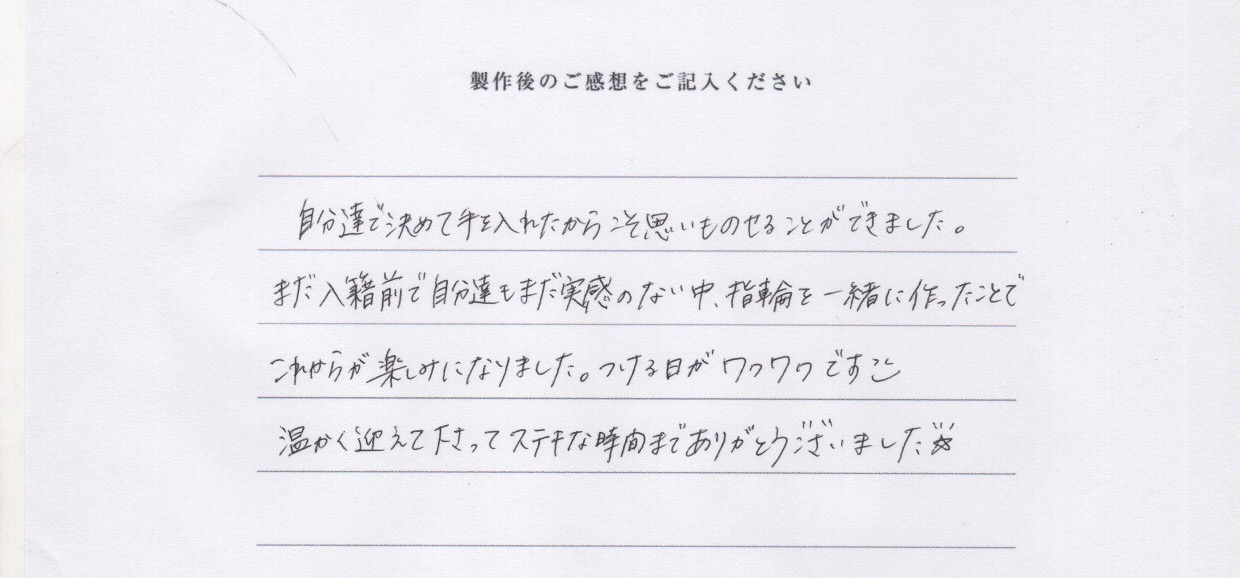 製作後のご感想をご記入ください
自分達で決めて手を入れたからこそ思いものせることができました。
まだ入籍前で自分達もまだ実感のない中、指輪を一緒に作ったことで
これからが楽しみになりました。つける日がワクワクです
温かく迎えて下さってステキな時間までありがとうございました☆